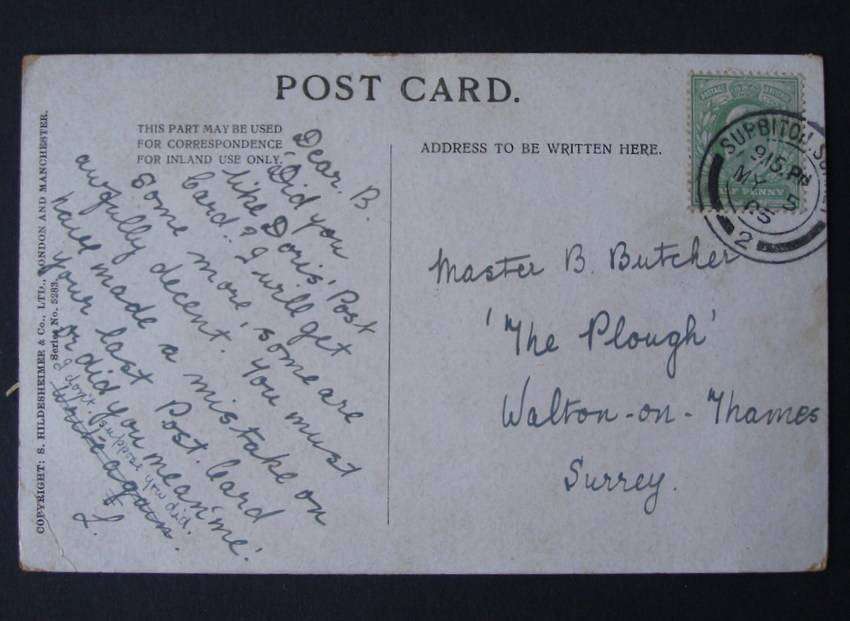 POST CARD.
THIS PART MAY BE USED
FOR CORRESPONDENCE
FOR INLAND USE ONLY.
ADDRESS TO BE WRITTEN HERE.
COPYRIGHT: S. HILDESHEIMER & Co., LTD., LONDON AND MANCHESTER.
Series No. 5283.
Dear. B.
Did you
like Doris' Post
Card? I will get
some more, some are
awfully decent. You must
have made a mistake on
your last Post Card
or did you mean 'me'.
I don't suppose you did.
Write again.
L.
Master B. Butcher
'The Plough'
Walton-on-Thames
Surrey.
SURBITON
9.15.PM
MY 5
05
2
PENNY